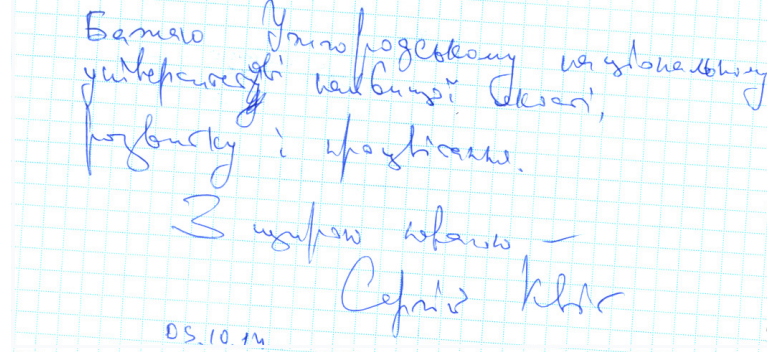 Бажаю Ужгородському національному
університетові найвищої якості,
розвитку і процвітання.
З щирою повагою –
Сергій Квіт
05.10.14